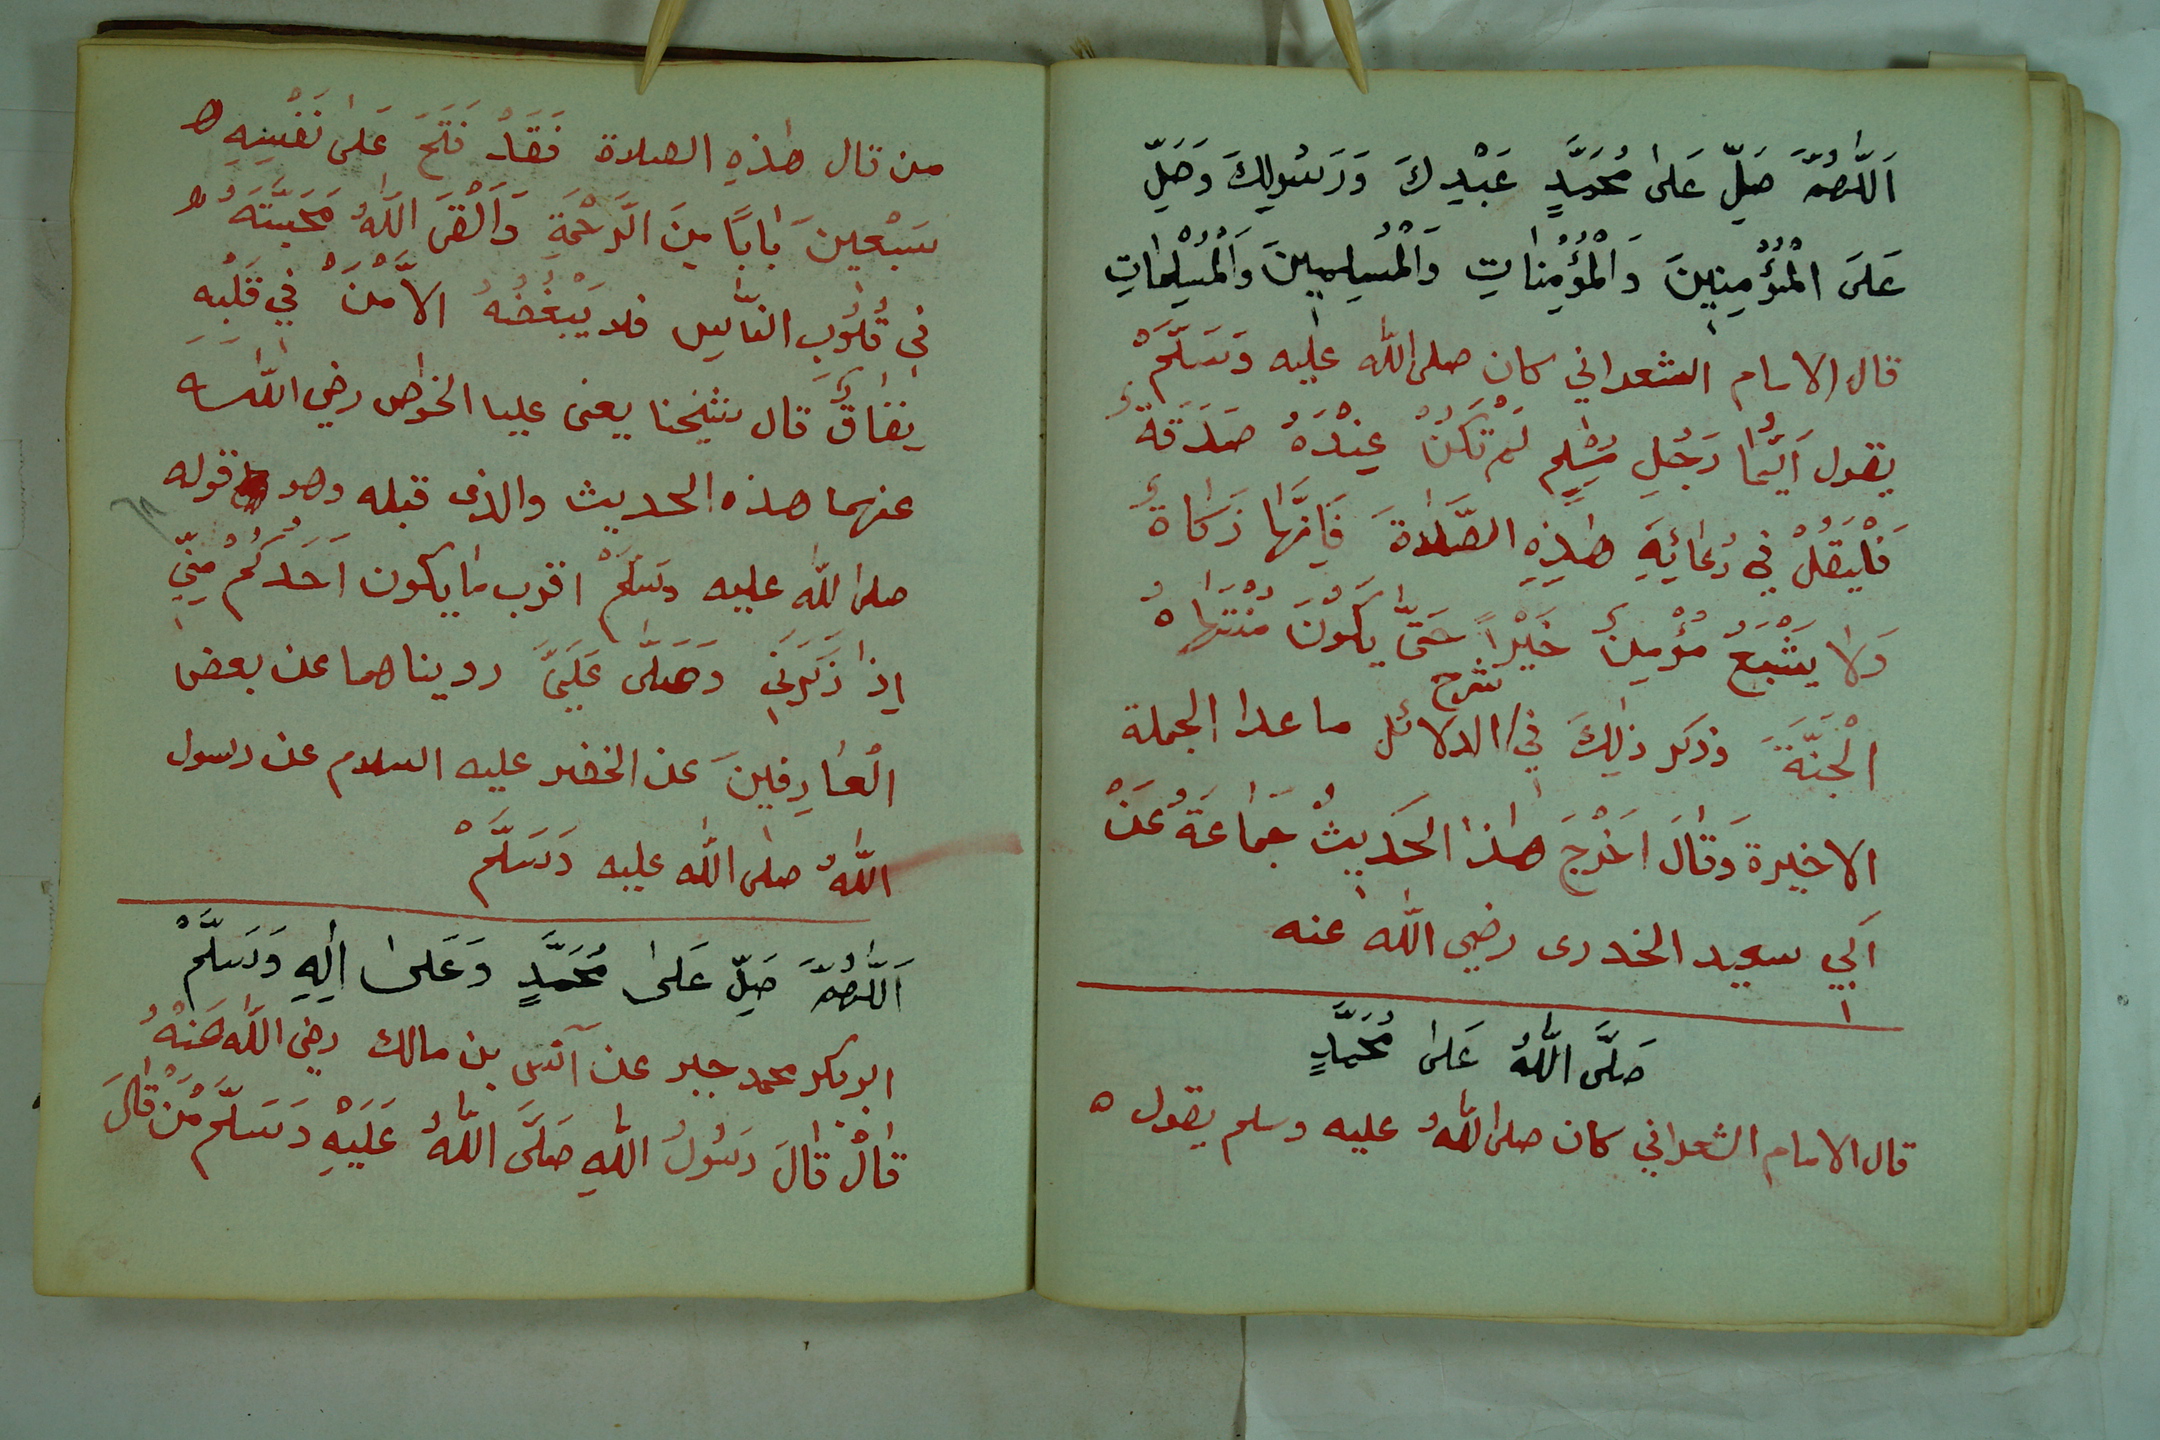 اَللّٰهُمَّ صَلِّ عَلٰى مُحَمَّدٍ عَبْدِكَ وَرَسُولِكَ وَصَلِّ
عَلَى الْمُؤْمِنِينَ وَالْمُؤْمِنَاتِ وَالْمُسْلِمِينَ وَالْمُسْلِمَاتِ
قال الامام الشعراني كان صلى الله عليه وَسَلَّمْ
يقول اَيُّمَا رَجُلٍ مُسْلِمٍ لَمْ تَكُنْ عِنْدَهُ صَدَقَةٌ
فَلْيَقُلْ فِي دُعَائِهِ هٰذِهِ الصَّلَاةَ فَاِنَّهَا زَكَاةٌ
وَلَا يَشْبَعُ مُؤْمِنٌ خَيْرًا حَتَّى يَكُونَ مُنْتَهَاهُ
الْجَنَّةَ وذكر ذٰلِكَ في شرح الدلائل ما عدا الجملة
الاخيرة وَقَالَ اَخْرَجَ هٰذَا الحَدِيثُ جَمَاعَةُ عَنْ
اَبِي سعيد الخدرى رضي الله عنه
صَلَّى اللّٰهُ عَلٰى مُحَمَّدٍ
قال الامام الشعراني كان صلى اللّٰهُ عليه وسلم يقول ه
من قال هٰذِهِ الصلاة فَقَدْ فَتَحَ عَلٰى نَفْسِهِ
سَبْعِينَ بَابًا مِنَ الرَّحْمَةِ وَاَلْقَى اللّٰهُ مَحَبَّتَهُ
فِي قُلُوبِ النَّاسِ فلا يَبْغُضُهُ الاَّ مَنْ فِي قَلْبِهِ
نِفَاقٌ قال شيخنا يعنى عليا الخواص رضي الله
عنهما هذه الحديث والذى قبله وهو قوله
صلى الله عليه وسَلَّمْ اقرب ما يكون اَحَدُكُمْ مِنِّي
اِذَا ذَكَرَنِي وَصَلَّى عَلَيَّ رويناهما عن بعض
الْعَارِفِينَ عن الخضر عليه السلام عن رسول
اللّٰهُ صلى الله عليه وَسَلَّمْ
اَللّٰهُمَّ صَلِّ عَلٰى مُحَمَّدٍ وَعَلٰى اٰلِهِ وَسَلَّمْ
ابو بكر محمد جبر عن آنس بن مالك رضي اللّٰه عَنْهُ
قَالْ قَالَ رَسُولُ اللّٰهِ صَلَّى اللّٰهُ عَلَيْهِ وَسَلَّمْ مَنْ قَالَ